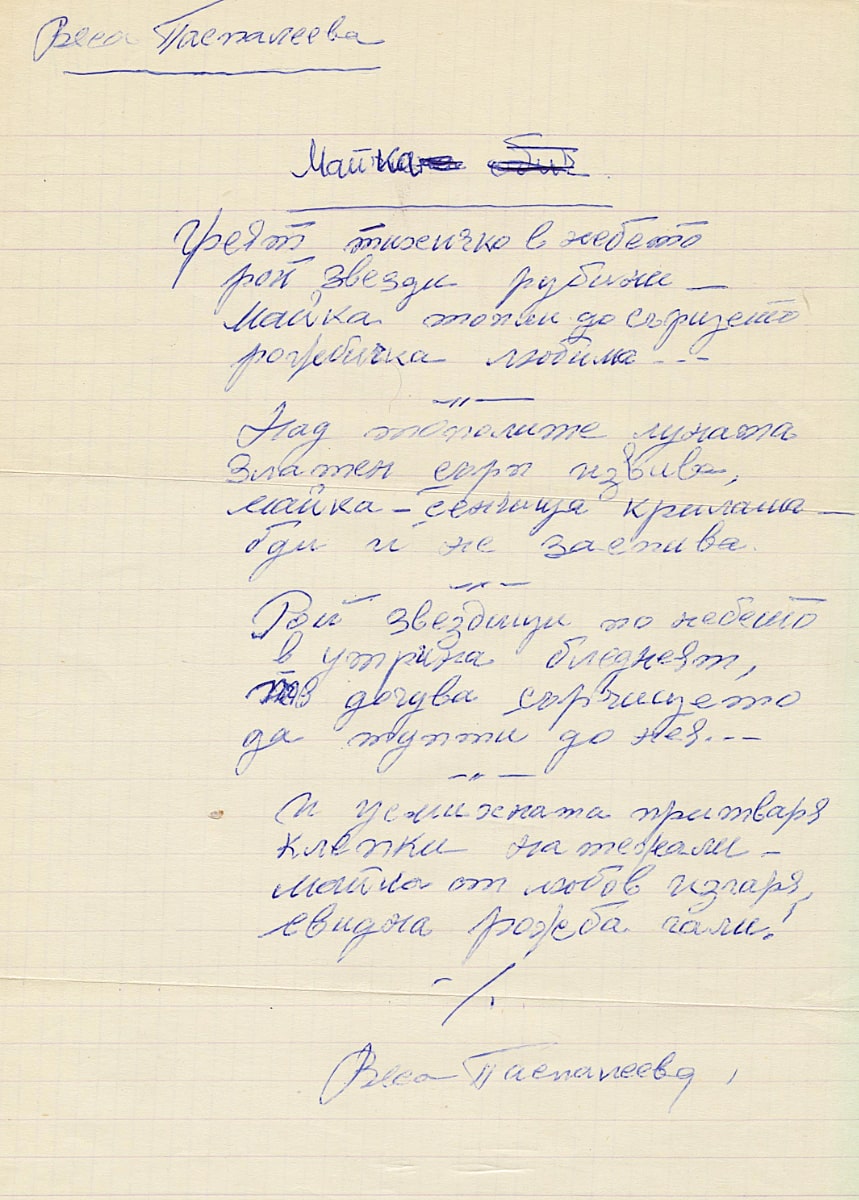 Веса Паспалеева
Майка
Греят тихичко в небето
рой звезди рубини —
майка топли до сърцето
рожбичка любима ---
—„—
Над тополите луната
златен сърп извива,
майка – сенчица крилата —
бди и не заспива.
—„—
Рой звездици по небето
в утрина бледнеят,
тя дочува сърчицето
да тупти до нея. --
—„—
И усмихната притваря
клепки натежали –
майка от любов изгаря,
свидна рожба гали!
-/.
Веса Паспалеева